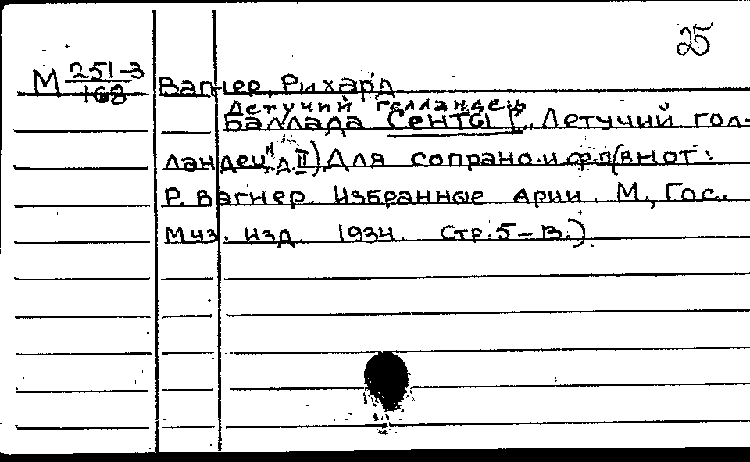 25
М 251-3 Вагнер, Рихард
168 Летучий голландец
Баллада Сенты ("Летучий гол-
ландец", д. II) Для сопрано и ф.п. (в нот:
Р. Вагнер. Избранные арии. М., Гос.
Муз. изд. 1934. Стр. 5-13.)